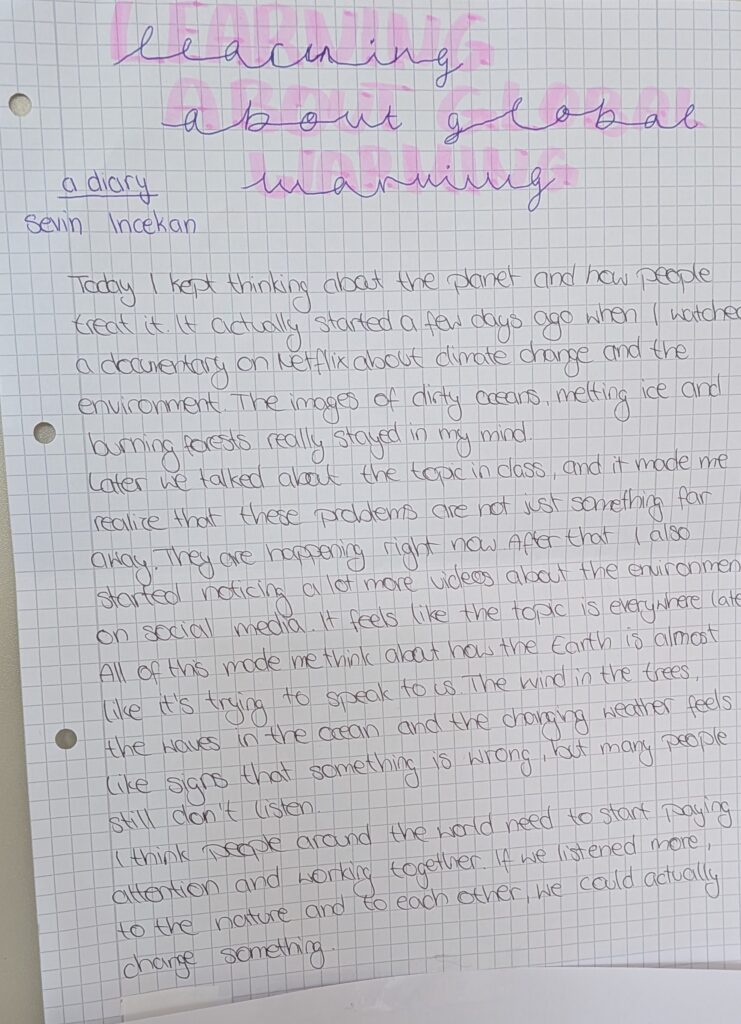 LEARNING
learning
ABOUT GLOBAL
about global
WARMING
warming
a diary
Sevin Incekan
Today I kept thinking about the planet and how people
treat it. It actually started a few days ago when I watched
a documentary on Netflix about climate change and the
environment. The images of dirty oceans, melting ice and
burning forests really stayed in my mind.
Later we talked about the topic in class, and it made me
realize that these problems are not just something far
away. They are happening right now. After that I also
started noticing a lot more videos about the environmen
on social media. It feels like the topic is everywhere late
All of this made me think about how the Earth is almost
like it's trying to speak to us. The wind in the trees,
the waves in the ocean and the changing weather feels
like signs that something is wrong, but many people
still don't listen.
I think people around the world need to start paying
attention and working together. If we listened more,
to the nature and to each other, we could actually
change something.